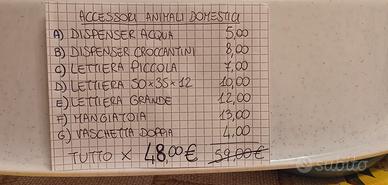 ACCESSORI ANIMALI DOMESTICI
A) DISPENSER ACQUA 5,00
B) DISPENSER CROCCANTINI 8,00
C) LETTIERA PICCOLA 7,00
D) LETTIERA 50x35x12 10,00
E) LETTIERA GRANDE 12,00
F) MANGIATOIA 13,00
G) VASCHETTA DOPPIA 4,00
TUTTO x 48,00€ 59,00€
subito